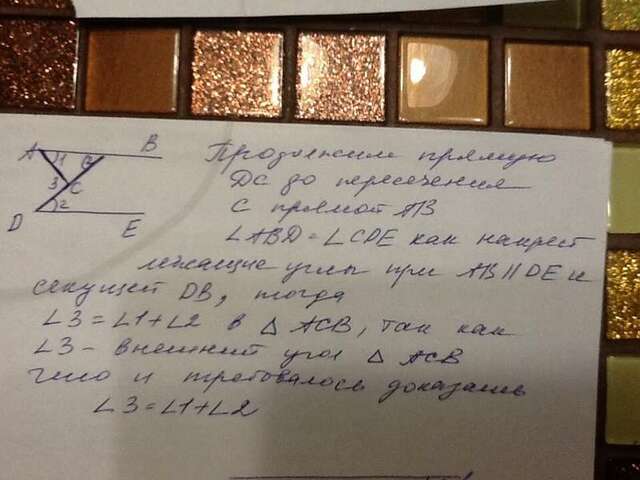 A 1 G B
3 C
2
D E
Продолжим прямую
DC до пересечения
с прямой AB
∠ABD = ∠CDE как накрест
лежащие углы при AB || DE и
секущей DB, тогда
∠3 = ∠1 + ∠2 в △ ACB, так как
∠3 - внешний угол △ ACB
что и требовалось доказать
∠3 = ∠1 + ∠2